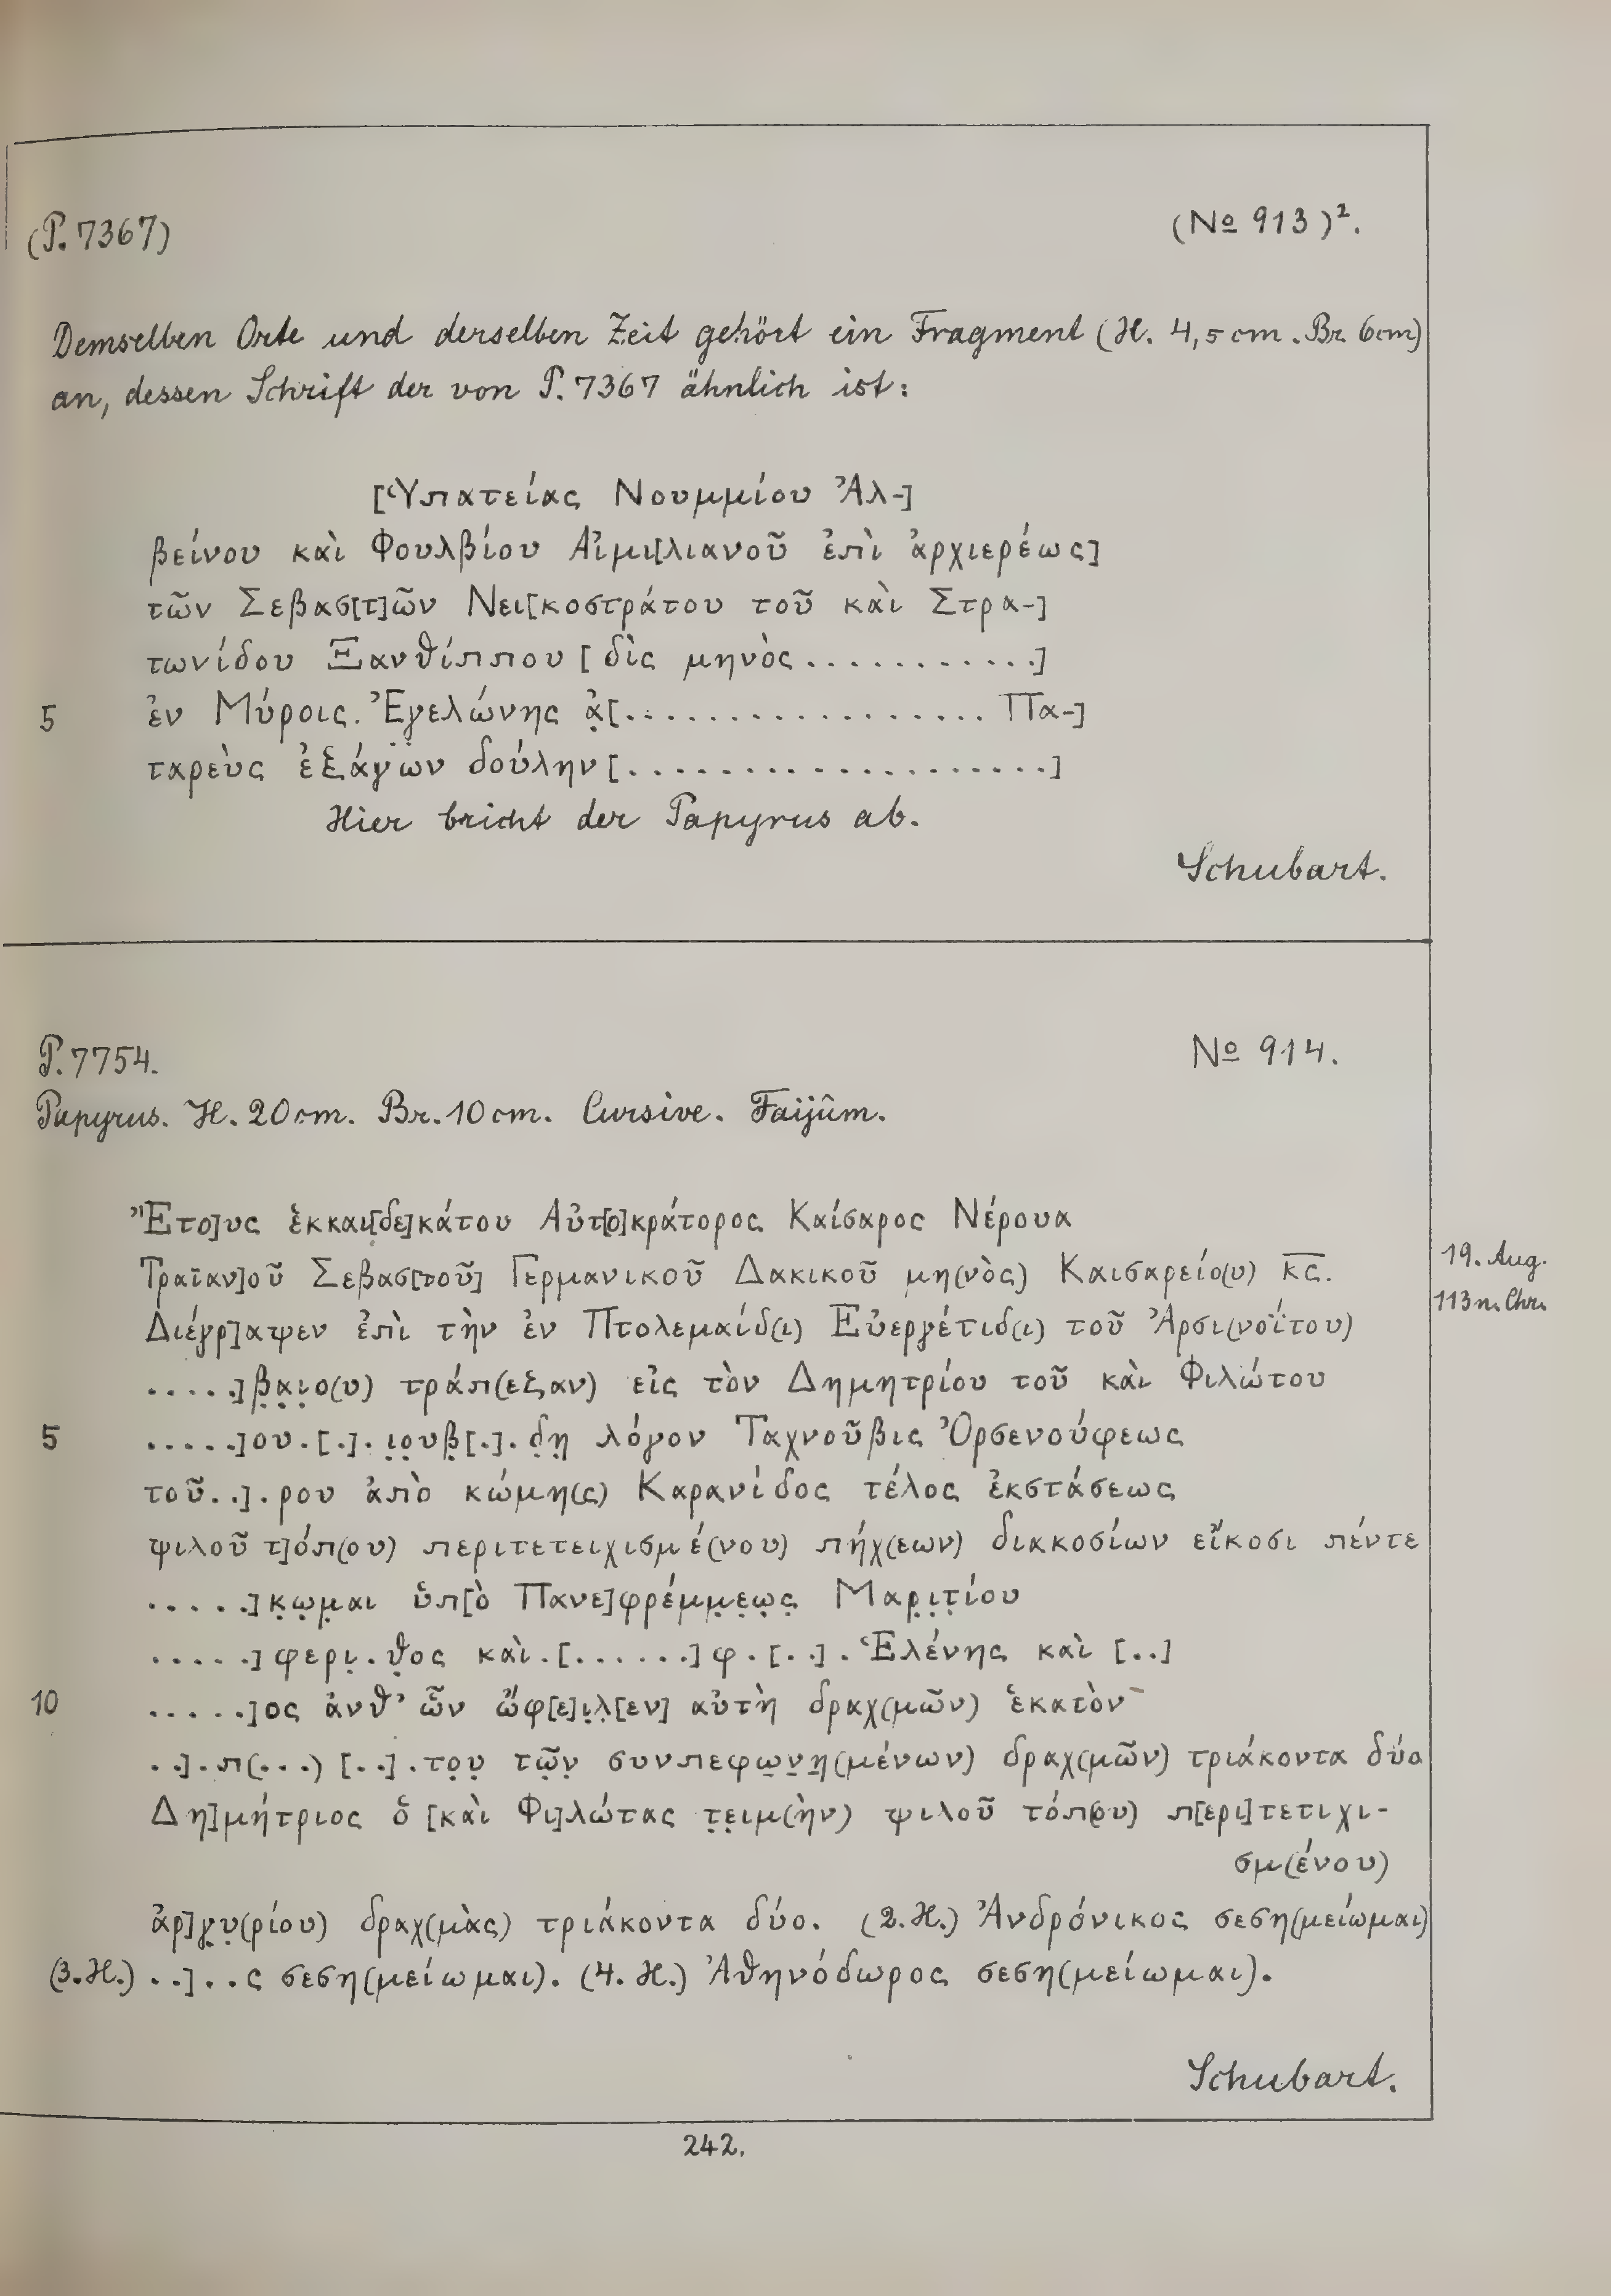 (P. 7367) (No 913)².
Demselben Orte und derselben Zeit gehört ein Fragment (H. 4,5 cm. Br. 6 cm)
an, dessen Schrift der von P. 7367 ähnlich ist:
[Ὑπατείας Νουμμίου Ἀλ-]
βείνου καὶ Φουλβίου Αἰμι[λιανοῦ ἐπὶ ἀρχιερέως]
τῶν Σεβασ[τ]ῶν Νει[κοστράτου τοῦ καὶ Στρα-]
τωνίδου Ξανθίππου [δὶς μηνὸς ............]
5 ἐν Μύροις. Ἐγελώνης ἀ̣[.................. Πα-]
ταρεὺς ἐξάγων δούλην [....................]
Hier bricht der Papyrus ab.
Schubart.
P. 7754. No 914.
Papyrus. H. 20 cm. Br. 10 cm. Cursive. Faijûm.
Ἔτο]υς ἑκκαι[δε]κάτου Αὐτ[ο]κράτορος Καίσαρος Νέρουα
Τραϊαν]οῦ Σεβασ[τοῦ] Γερμανικοῦ Δακικοῦ μη(νὸς) Καισαρείο(υ) κ̅ς̅. 19. Aug.
113 n. Chr.
Διέγρ]αψεν ἐπὶ τὴν ἐν Πτολεμαίδ(ι) Εὐεργέτιδ(ι) τοῦ Ἀρσι(νοΐτου)
.....]β̣α̣ι̣ο(υ) τράπ(εξαν) εἰς τὸν Δημητρίου τοῦ καὶ Φιλώτου
5 .....]ου.[.]. ι̣ο̣υβ̣[.]. δ̣η̣ λόγον Ταχνοῦβις Ὀρσενούφεως
τοῦ..].ρου ἀπὸ κώμη(ς) Καρανίδος τέλος ἐκστάσεως
ψιλοῦ τ]όπ(ου) περιτετειχισμέ(νου) πήχ(εων) διακοσίων εἴκοσι πέντε
.....]κ̣ω̣μ̣αι ὑπ[ὸ Πανε]φρέμμ̣ε̣ω̣ς̣ Μαρ̣ι̣τ̣ίου
.....]φερι̣.θ̣ος καὶ.[......]φ.[..]. Ἑλένης καὶ [..]
10 .....]ος ἀνθ’ ὧν ὤφ[ε]ι̣λ̣[εν] αὐτὴ δραχ(μῶν) ἑκατὸν
..].π(...) [..].το̣υ̣ τῶ̣ν̣ συνπεφω̣ν̣η̣(μένων) δραχ(μῶν) τριάκοντα δύο
Δη]μήτριος ὁ [καὶ Φι]λώτας τ̣ε̣ιμ(ὴν) ψιλοῦ τόπ(ου) π[ερι]τετιχι-
σμ(ένου)
ἀρ]γ̣υ̣(ρίου) δραχ(μὰς) τριάκοντα δύο. (2. H.) Ἀνδρόνικος σεση(μείωμαι)
(3. H.) ..]..ς σεση(μείωμαι). (4. H.) Ἀθηνόδωρος σεση(μείωμαι).
Schubart.
242.